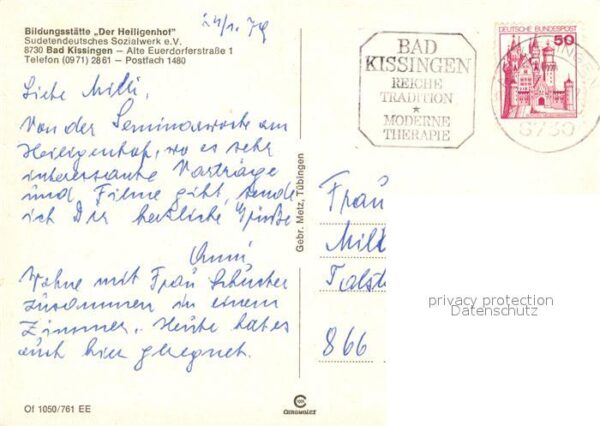 24/1. 79
Bildungsstätte „Der Heiligenhof"
Sudetendeutsches Sozialwerk e.V.
8730 Bad Kissingen – Alte Euerdorferstraße 1
Telefon (0971) 2861 – Postfach 1480
Liebe Milli,
Von der Seminarwoche am
Heiligenhof, wo es sehr
interessante Vorträge
und Filme gibt, sende
ich Dir herzliche Grüße
Anni
Wohne mit Frau Schuster
zusammen in einem
Zimmer. Heute hat es
auch hier geregnet.
Of 1050/761 EE
Gebr. Metz, Tübingen
BAD
KISSINGEN
REICHE
TRADITION
★
MODERNE
THERAPIE
DEUTSCHE BUNDESPOST
50
8730
Frau
Mill
Talst
866
privacy protection
Datenschutz